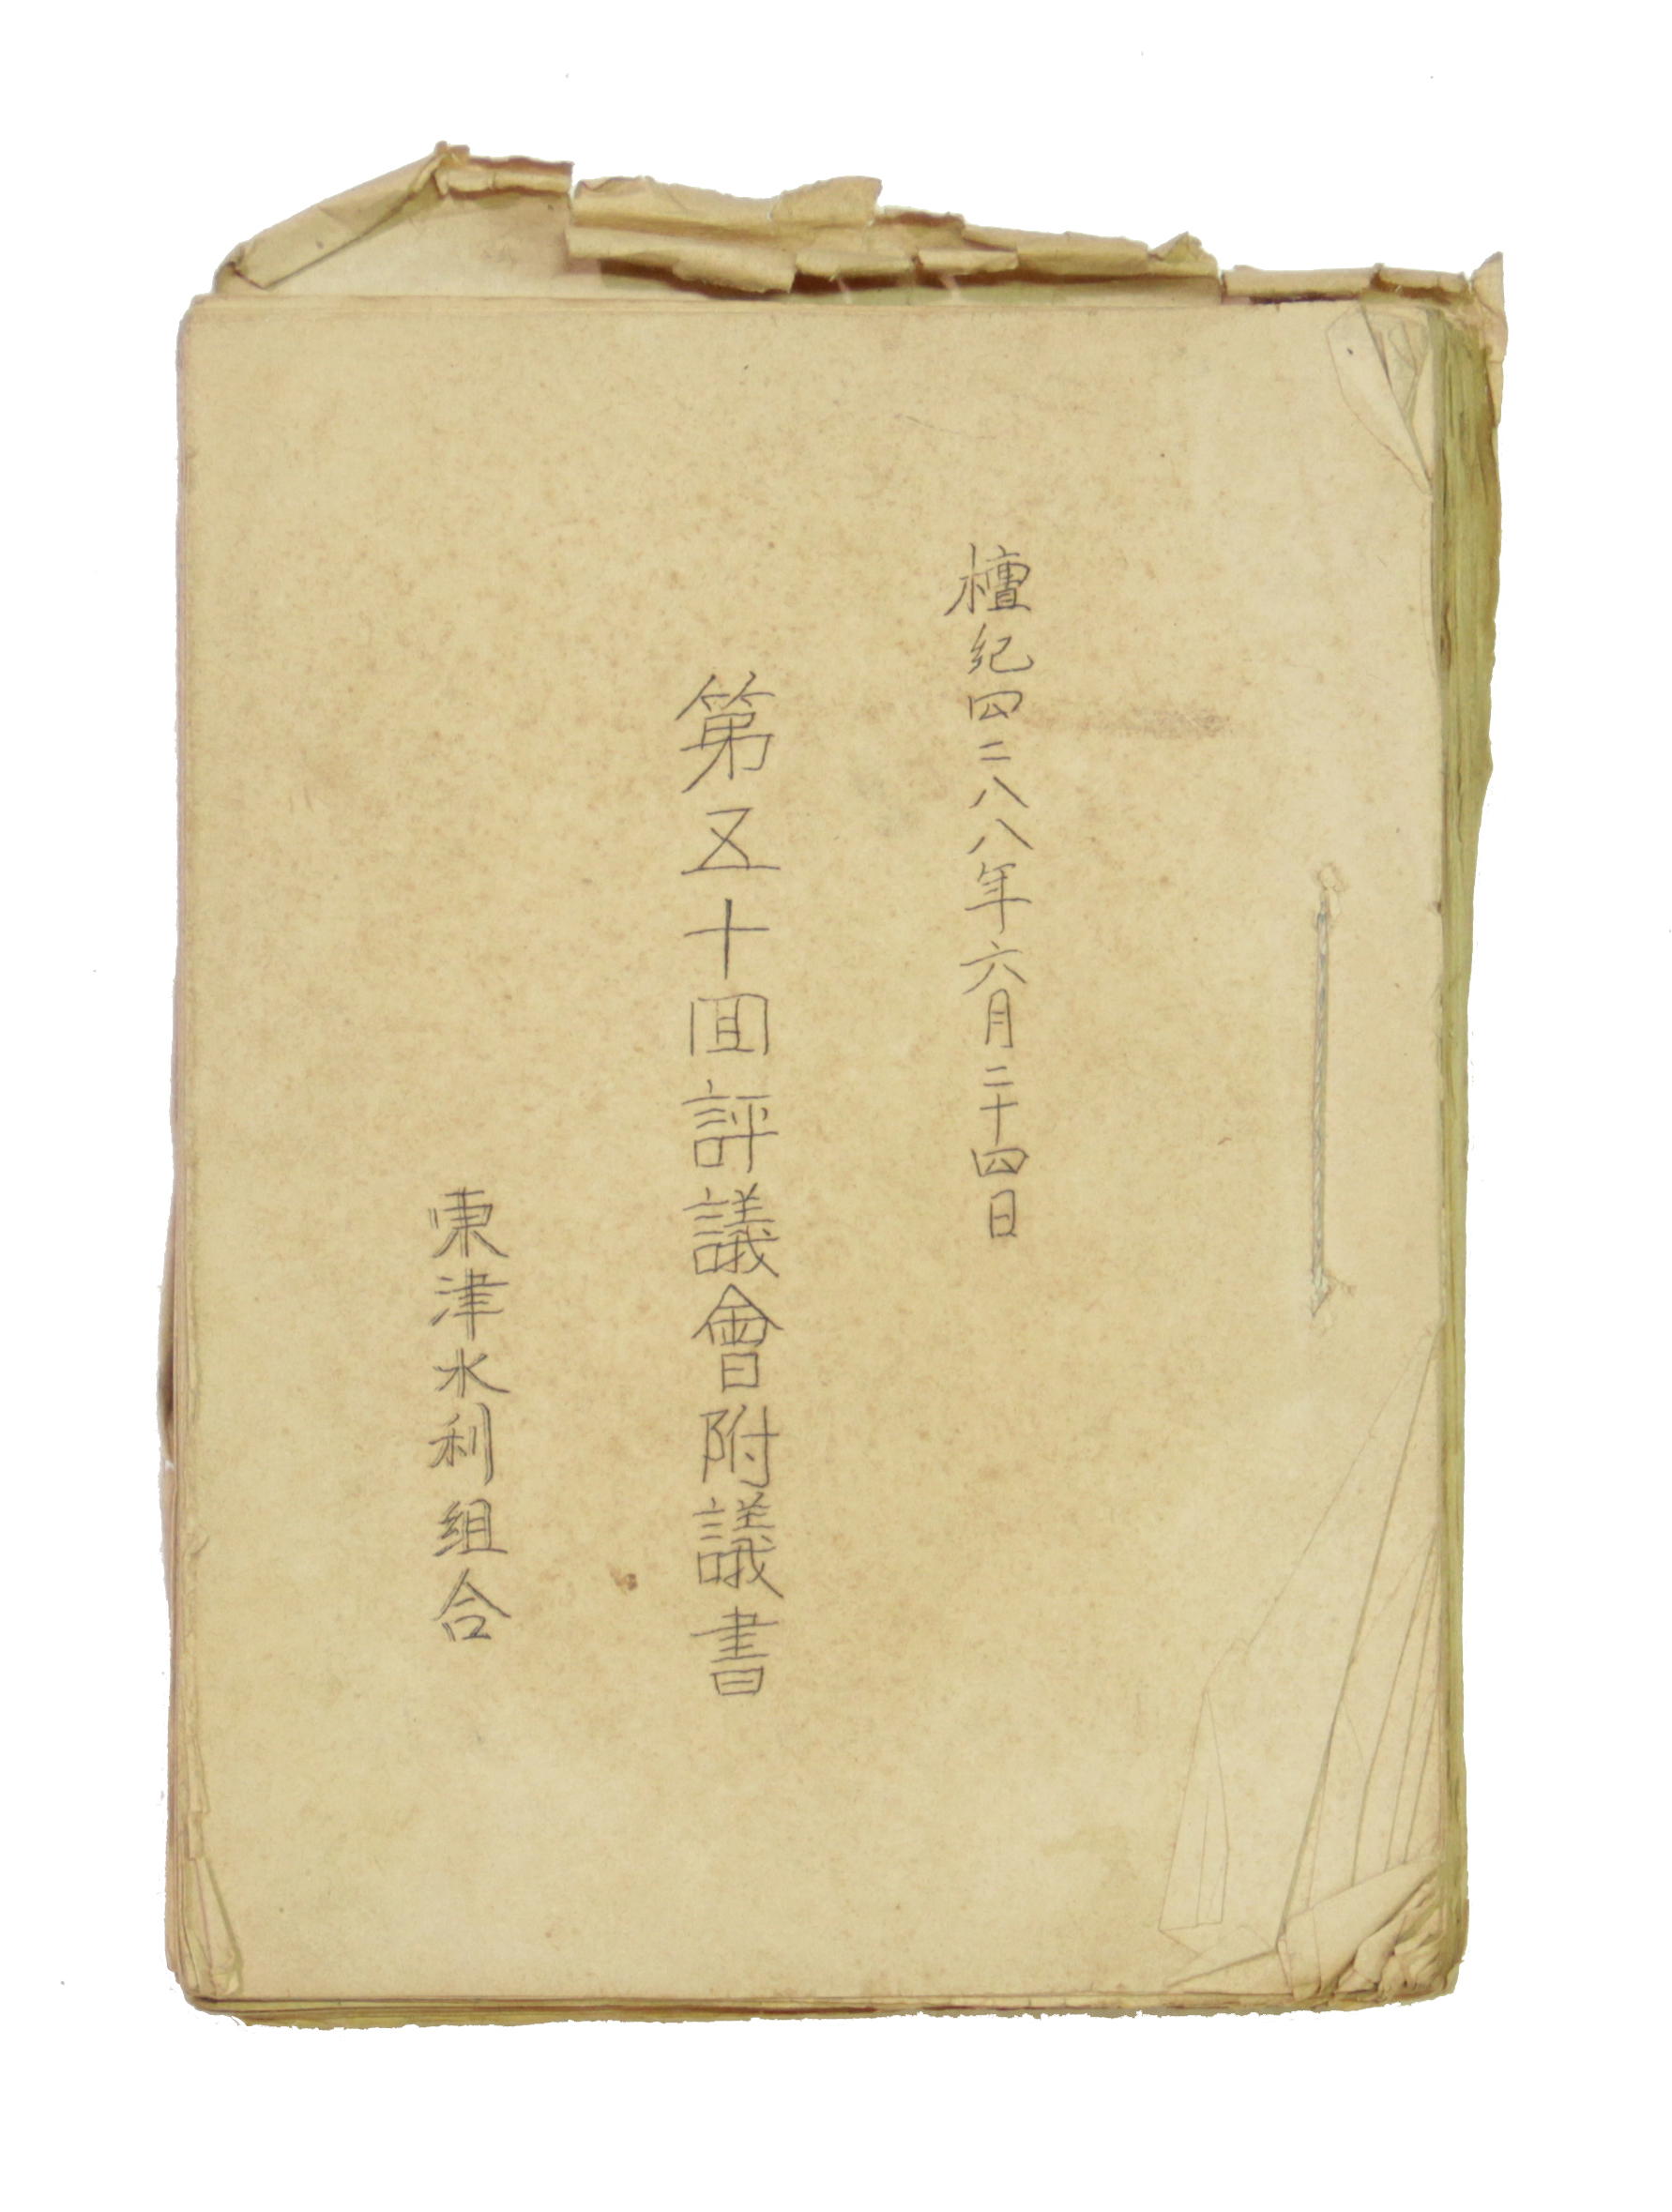 檀紀四二八八年六月二十四日
第五十回評議會附議書
東津水利組合